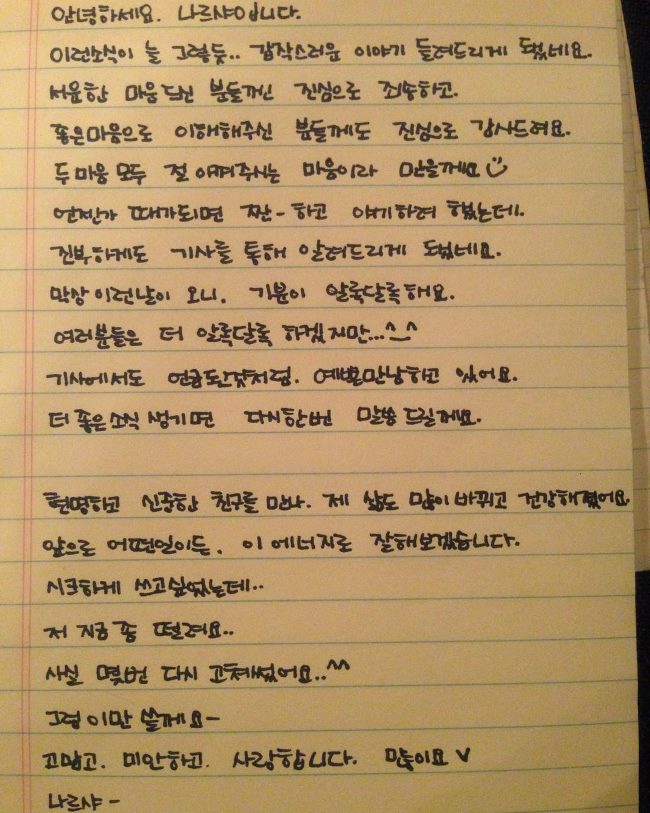 안녕하세요. 나르샤입니다.
이런소식이 늘 그렇듯.. 갑작스러운 이야기 들려드리게 됐네요.
서운한 마음 드신 분들껜 진심으로 죄송하고.
좋은마음으로 이해해주신 분들께도 진심으로 감사드려요.
두마음 모두 절 아껴주시는 마음이라 믿을께요
언젠가 때가되면 짠-하고 얘기하려 했는데.
진부하게도 기사를 통해 알려드리게 됐네요.
막상 이런날이 오니. 기분이 알록달록해요.
여러분들은 더 알록달록 하겠지만...^_^
기사에서도 언급된것처럼. 예쁜만남하고 있어요.
더 좋은소식 생기면 다시한번 말씀 드릴께요.
현명하고 신중한 친구를 만나. 제 삶도 많이 바뀌고 건강해졌어요.
앞으로 어떤일이든. 이 에너지로 잘해보겠습니다.
시크하게 쓰고싶었는데..
저 지금 좀 떨려요..
사실 몇번 다시 고쳐썼어요..^^
그럼 이만 쓸께요-
고맙고. 미안하고. 사랑합니다. 많이요 V
나르샤-